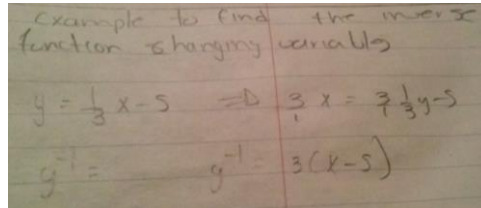 Example to find the inverse
function changing variable
y = 1/3 x - 5 => 3/1 x = 3/1 1/3 y - 5
y^-1 = y^-1 = 3(x - 5)